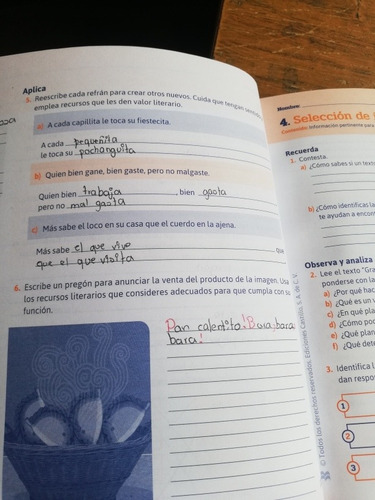 Aplica
5. Reescribe cada refrán para crear otros nuevos. Cuida que tengan
emplea recursos que les den valor literario.
a) A cada capillita le toca su fiestecita.
A cada pequeñita
le toca su pachanguita
b) Quien bien gane, bien gaste, pero no malgaste.
Quien bien trabaja, bien gasta
pero no mal gasta
c) Más sabe el loco en su casa que el cuerdo en la ajena.
Más sabe el que vive que
que el que visita
6. Escribe un pregón para anunciar la venta del producto de la imagen. Usa
los recursos literarios que consideres adecuados para que cumpla con su
función.
Pan calentito! Bara, bara
bara!
© Todos los derechos reservados, Ediciones Castillo, S. A. de C. V.
Nombre:
4. Selección de
Contenido: Información pertinente para
Recuerda
1. Contesta.
a) ¿Cómo sabes si un texto
b) ¿Cómo identificas la
te ayudan a encon
Observa y analiza
2. Lee el texto "Gra
ponderse con la
a) ¿Por qué hac
b) ¿Qué es un
c) ¿En qué pla
d) ¿Cómo pod
e) ¿Qué plan
f) ¿Qué dete
3. Identifica l
dan respo
1
2
3